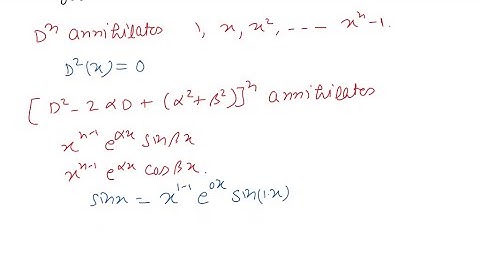 Dⁿ annihilates 1, x, x², --- xⁿ-1.
D²(x) = 0
[D² - 2αD + (α²+β²)]ⁿ annihilates
xⁿ⁻¹ e^αx sinβx
xⁿ⁻¹ e^αx cosβx.
sinx = x¹⁻¹ e^0x sin(1.x)